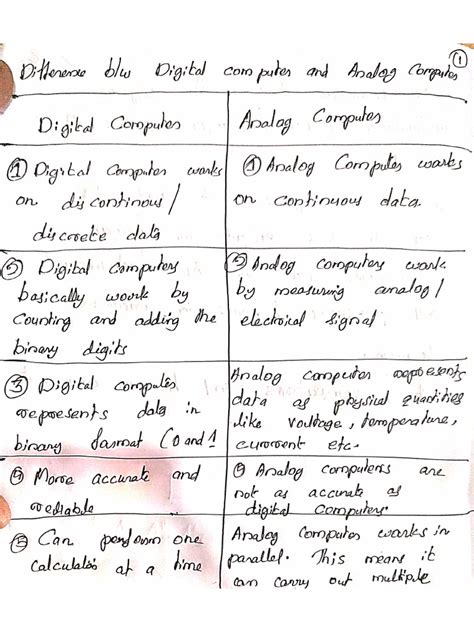 1
Difference b/w Digital computer and Analog Computer
Digital Computer
Analog Computer
① Digital Computer works
on discontinous /
discrete data
① Analog Computer works
on continuous data.
② Digital Computers
basically work by
Counting and adding the
binary digits
② Analog computers work
by measuring analog /
electrical signal
③ Digital computer
represents data in
binary format (0 and 1
Analog computer represents
data as physical quantities
like voltage, temperature,
current etc.
④ More accurate and
reliable
④ Analog computers are
not as accurate as
digital computers.
⑤ Can perform one
at a time
Analog Computer works in
parallel. This means it
can carry out multiple